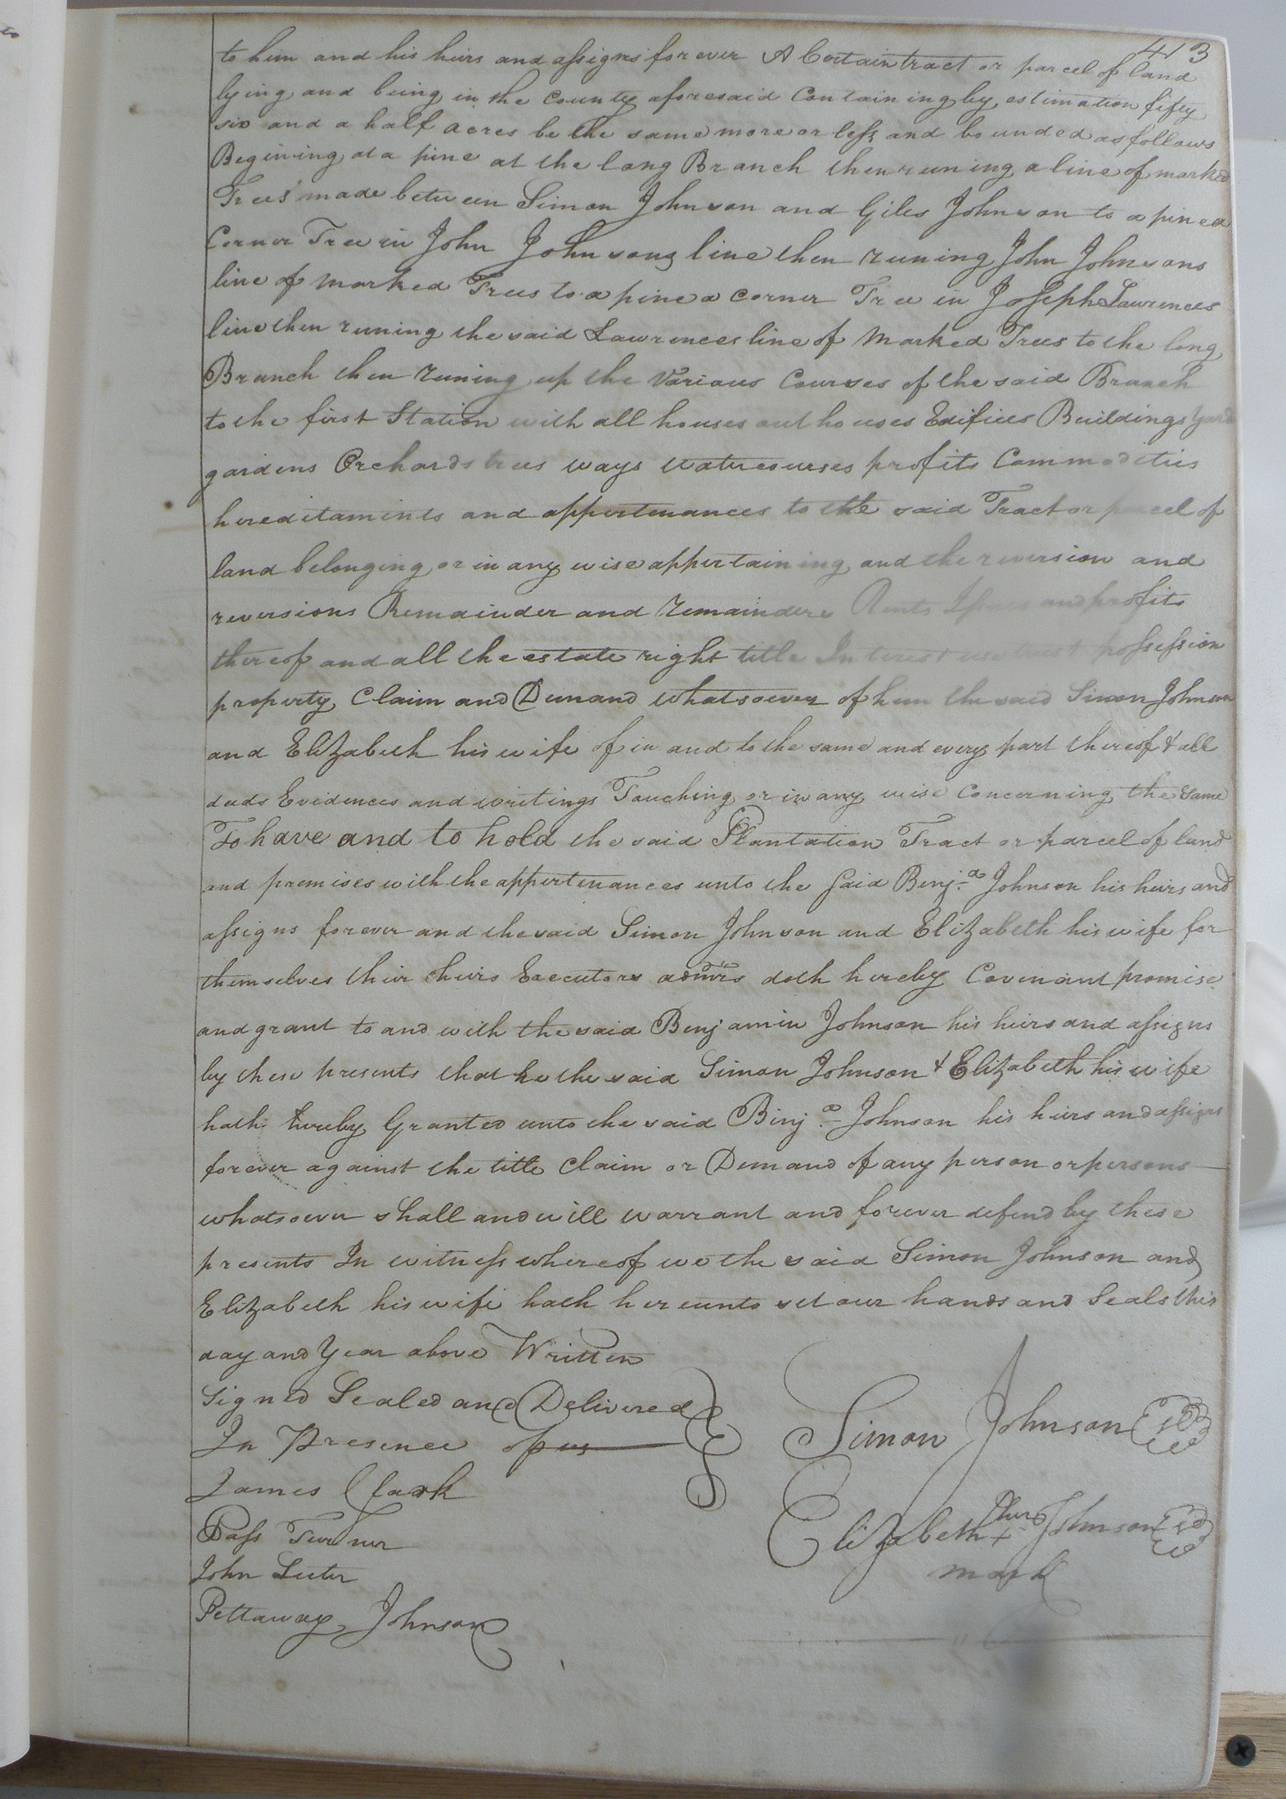 413
to him and his heirs and assigns forever A Certain tract or parcel of land
lying and being in the County aforesaid Containing by estimation fifty
six and a half acres be the same more or less and bounded as follows
Begining at a pine at the long Branch then runing a line of marked
Trees made between Simon Johnson and Giles Johnson to a pine a
Corner Tree in John Johnsons line then runing John Johnsons
line of marked Trees to a pine a corner Tree in Joseph Lawrences
line then runing the said Lawrences line of Marked Trees to the long
Branch then runing up the Various Courses of the said Branch
to the first Station with all houses out houses Edifices Buildings yards
gardens Orchards trees ways watercourses profits Commodities
hereditaments and appertenances to the said Tract or parcel of
land belonging or in any wise appertaining and the reversion and
reversions Remainder and remainders Rents Issues and profits
thereof and all the estate right title Interest use trust possession
property Claim and Demand whatsoever of him the said Simon Johnson
and Elizabeth his wife of in and to the same and every part thereof & all
deeds Evidences and writings Touching or in any wise Concerning the same
To have and to hold the said Plantation Tract or parcel of land
and premises with the appertenances unto the said Benja Johnson his heirs and
assigns forever and the said Simon Johnson and Elizabeth his wife for
themselves their heirs Executors admrs doth hereby Covenant promise
and grant to and with the said Benjamin Johnson his heirs and assigns
by these presents that he the said Simon Johnson & Elizabeth his wife
hath hereby Granted unto the said Benja Johnson his heirs and assigns
forever against the title Claim or Demand of any person or persons
whatsoever shall and will warrant and forever defend by these
presents In witness whereof we the said Simon Johnson and
Elizabeth his wife hath hereunto set our hands and Seals this
day and Year above Written
Signed Sealed and Delivered
In Presence of us
Simon Johnson
James Clark
Pass Turner
Elizabeth her + Johnson
mark
John Luter
Pettaway Johnson